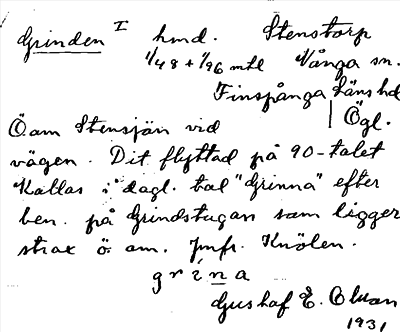 Grinden I hmd. Stenstorp
1/48 + 1/96 mtl Vånga sn.
Finspånga läns hd
Ögl.
Ö om Stensjön vid
vägen. Dit flyttad på 90-talet
Kallas i dagl. tal "Grinna" efter
ben. på Grindstugan som ligger
strax ö. om. Jmfr. Knölen.
grina
Gustaf E. Ekman
1931